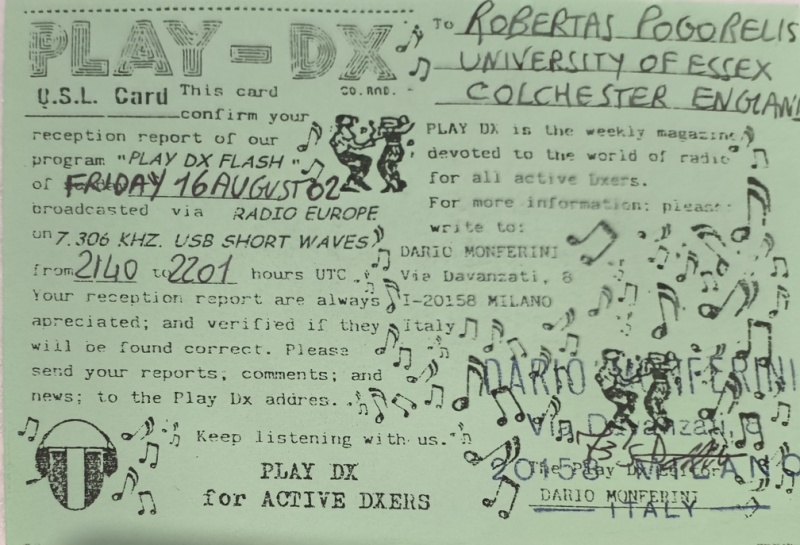 PLAY-DX
CO.RAD.
Q.S.L. Card This card
confirm your
reception report of our
program "PLAY DX FLASH"
of FRIDAY 16 AUGUST 02
broadcasted via RADIO EUROPE
on 7.306 KHZ. USB SHORT WAVES
from 2140 to 2201 hours UTC.
Your reception report are always
apreciated; and verified if they
will be found correct. Please
send your reports; comments; and
news; to the Play Dx addres..
Keep listening with us."
PLAY DX
for ACTIVE DXERS
To ROBERTAS POGORELIS
UNIVERSITY OF ESSEX
COLCHESTER ENGLAND
PLAY DX is the weekly magazine
devoted to the world of radio
for all active Dxers.
For more information: please
write to:
DARIO MONFERINI
Via Davanzati, 8
I-20158 MILANO
Italy
DARIO MONFERINI
Via Davanzati, 8
20158 MILANO
ITALY
The Play Dx
DARIO MONFERINI